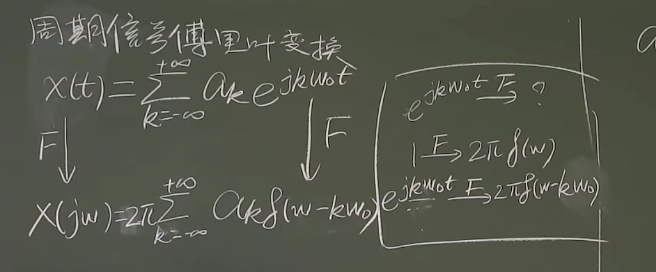 周期信号傅里叶变换
x(t)=∑_{k=-∞}^{+∞} a_k e^{jkω₀t}
F↓ ↓F
X(jω)=2π∑_{k=-∞}^{+∞} a_k δ(ω-kω₀)
e^{jkω₀t} —F→ ?
1 —F→ 2πδ(ω)
e^{jkω₀t} —F→ 2πδ(ω-kω₀)